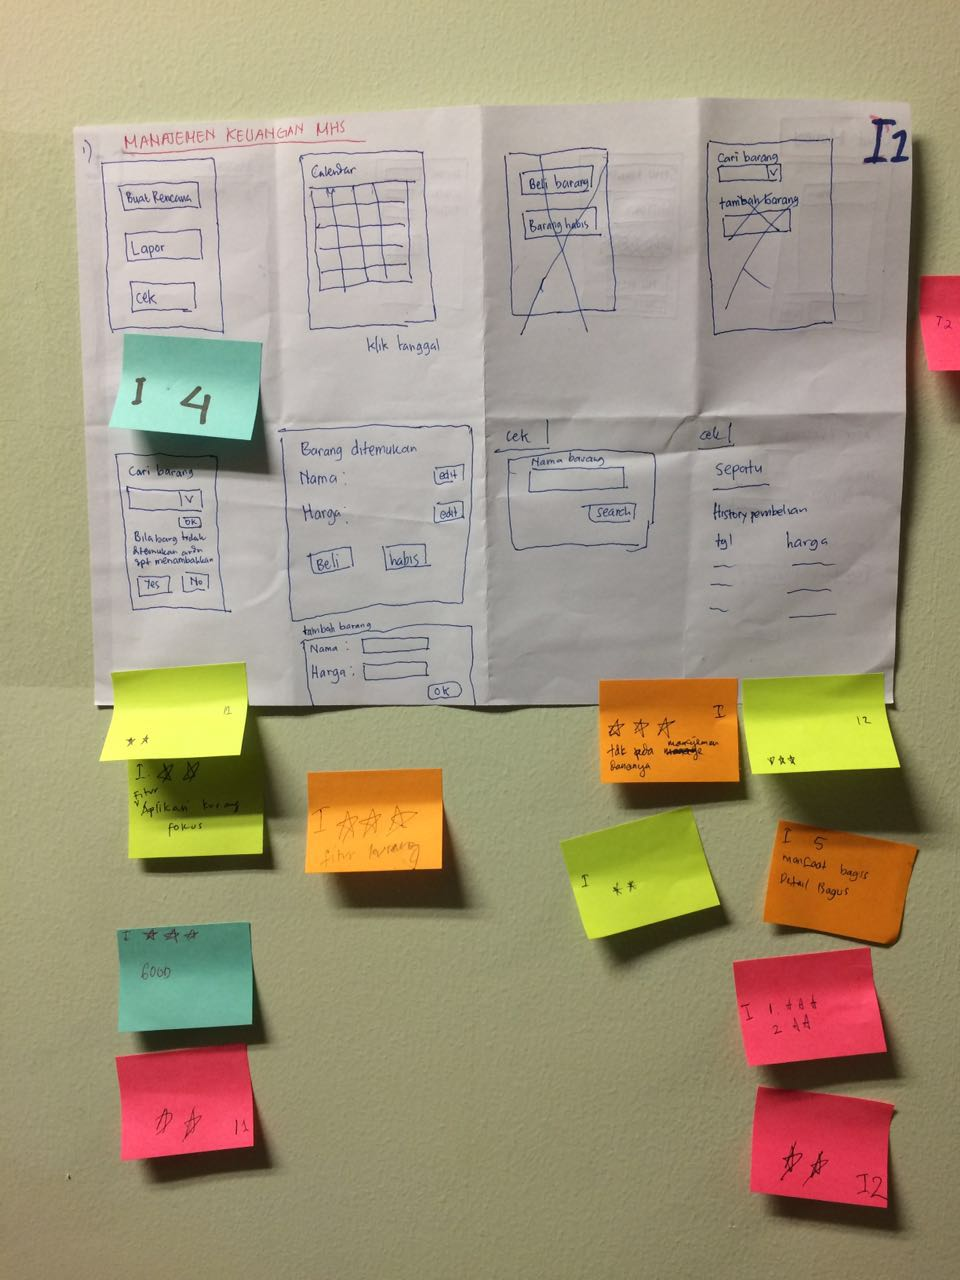 1)
MANAJEMEN KEUANGAN MHS
I1
Buat Rencana
Lapor
Cek
Calendar
klik tanggal
Beli barang
Barang habis
Cari barang
V
tambah barang
I 4
T2
Cari barang
V
OK
Bila barang tidak
ditemukan anda
dpt menambahkan
Yes
No
Barang ditemukan
Nama :
edit
Harga :
edit
Beli
habis
tambah barang
Nama :
Harga :
OK
cek
Nama barang
search
cek
sepatu
History pembelian
tgl
harga
I1
I
fitur
Aplikasi kurang
fokus
I
fitur kurang
I
GOOD
I1
I
tdk pada manajemen
dananya
I2
I
I 5
manfaat bagus
Detail Bagus
I 1.
2
I2